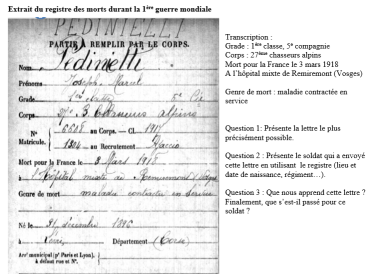 Extrait du registre des morts durant la 1ère guerre mondiale
PEDINIELLI
PARTIE À REMPLIR PAR LE CORPS.
Nom Pedinielli
Prénoms Joseph Marcel
Grade 5e Cie
Corps 27e B. Chasseurs alpins
N° 6568 au Corps. — Cl. 1917
Matricule. 1304 au Recrutement Ajaccio
Mort pour la France le 3 Mars 1918
à l'hôpital mixte de Remiremont (Vosges)
Genre de mort maladie contractée en service
Né le 31 décembre 1896
à Département (Corse)
Arrt municipal (pr Paris et Lyon),
à défaut rue et N°.
Transcription :
Grade : 1ère classe, 5e compagnie
Corps : 27ème chasseurs alpins
Mort pour la France le 3 mars 1918
A l'hôpital mixte de Remiremont (Vosges)
Genre de mort : maladie contractée en
service
Question 1: Présente la lettre le plus
précisément possible.
Question 2 : Présente le soldat qui a envoyé
cette lettre en utilisant le registre (lieu et
date de naissance, régiment…).
Question 3 : Que nous apprend cette lettre ?
Finalement, que s'est-il passé pour ce
soldat ?